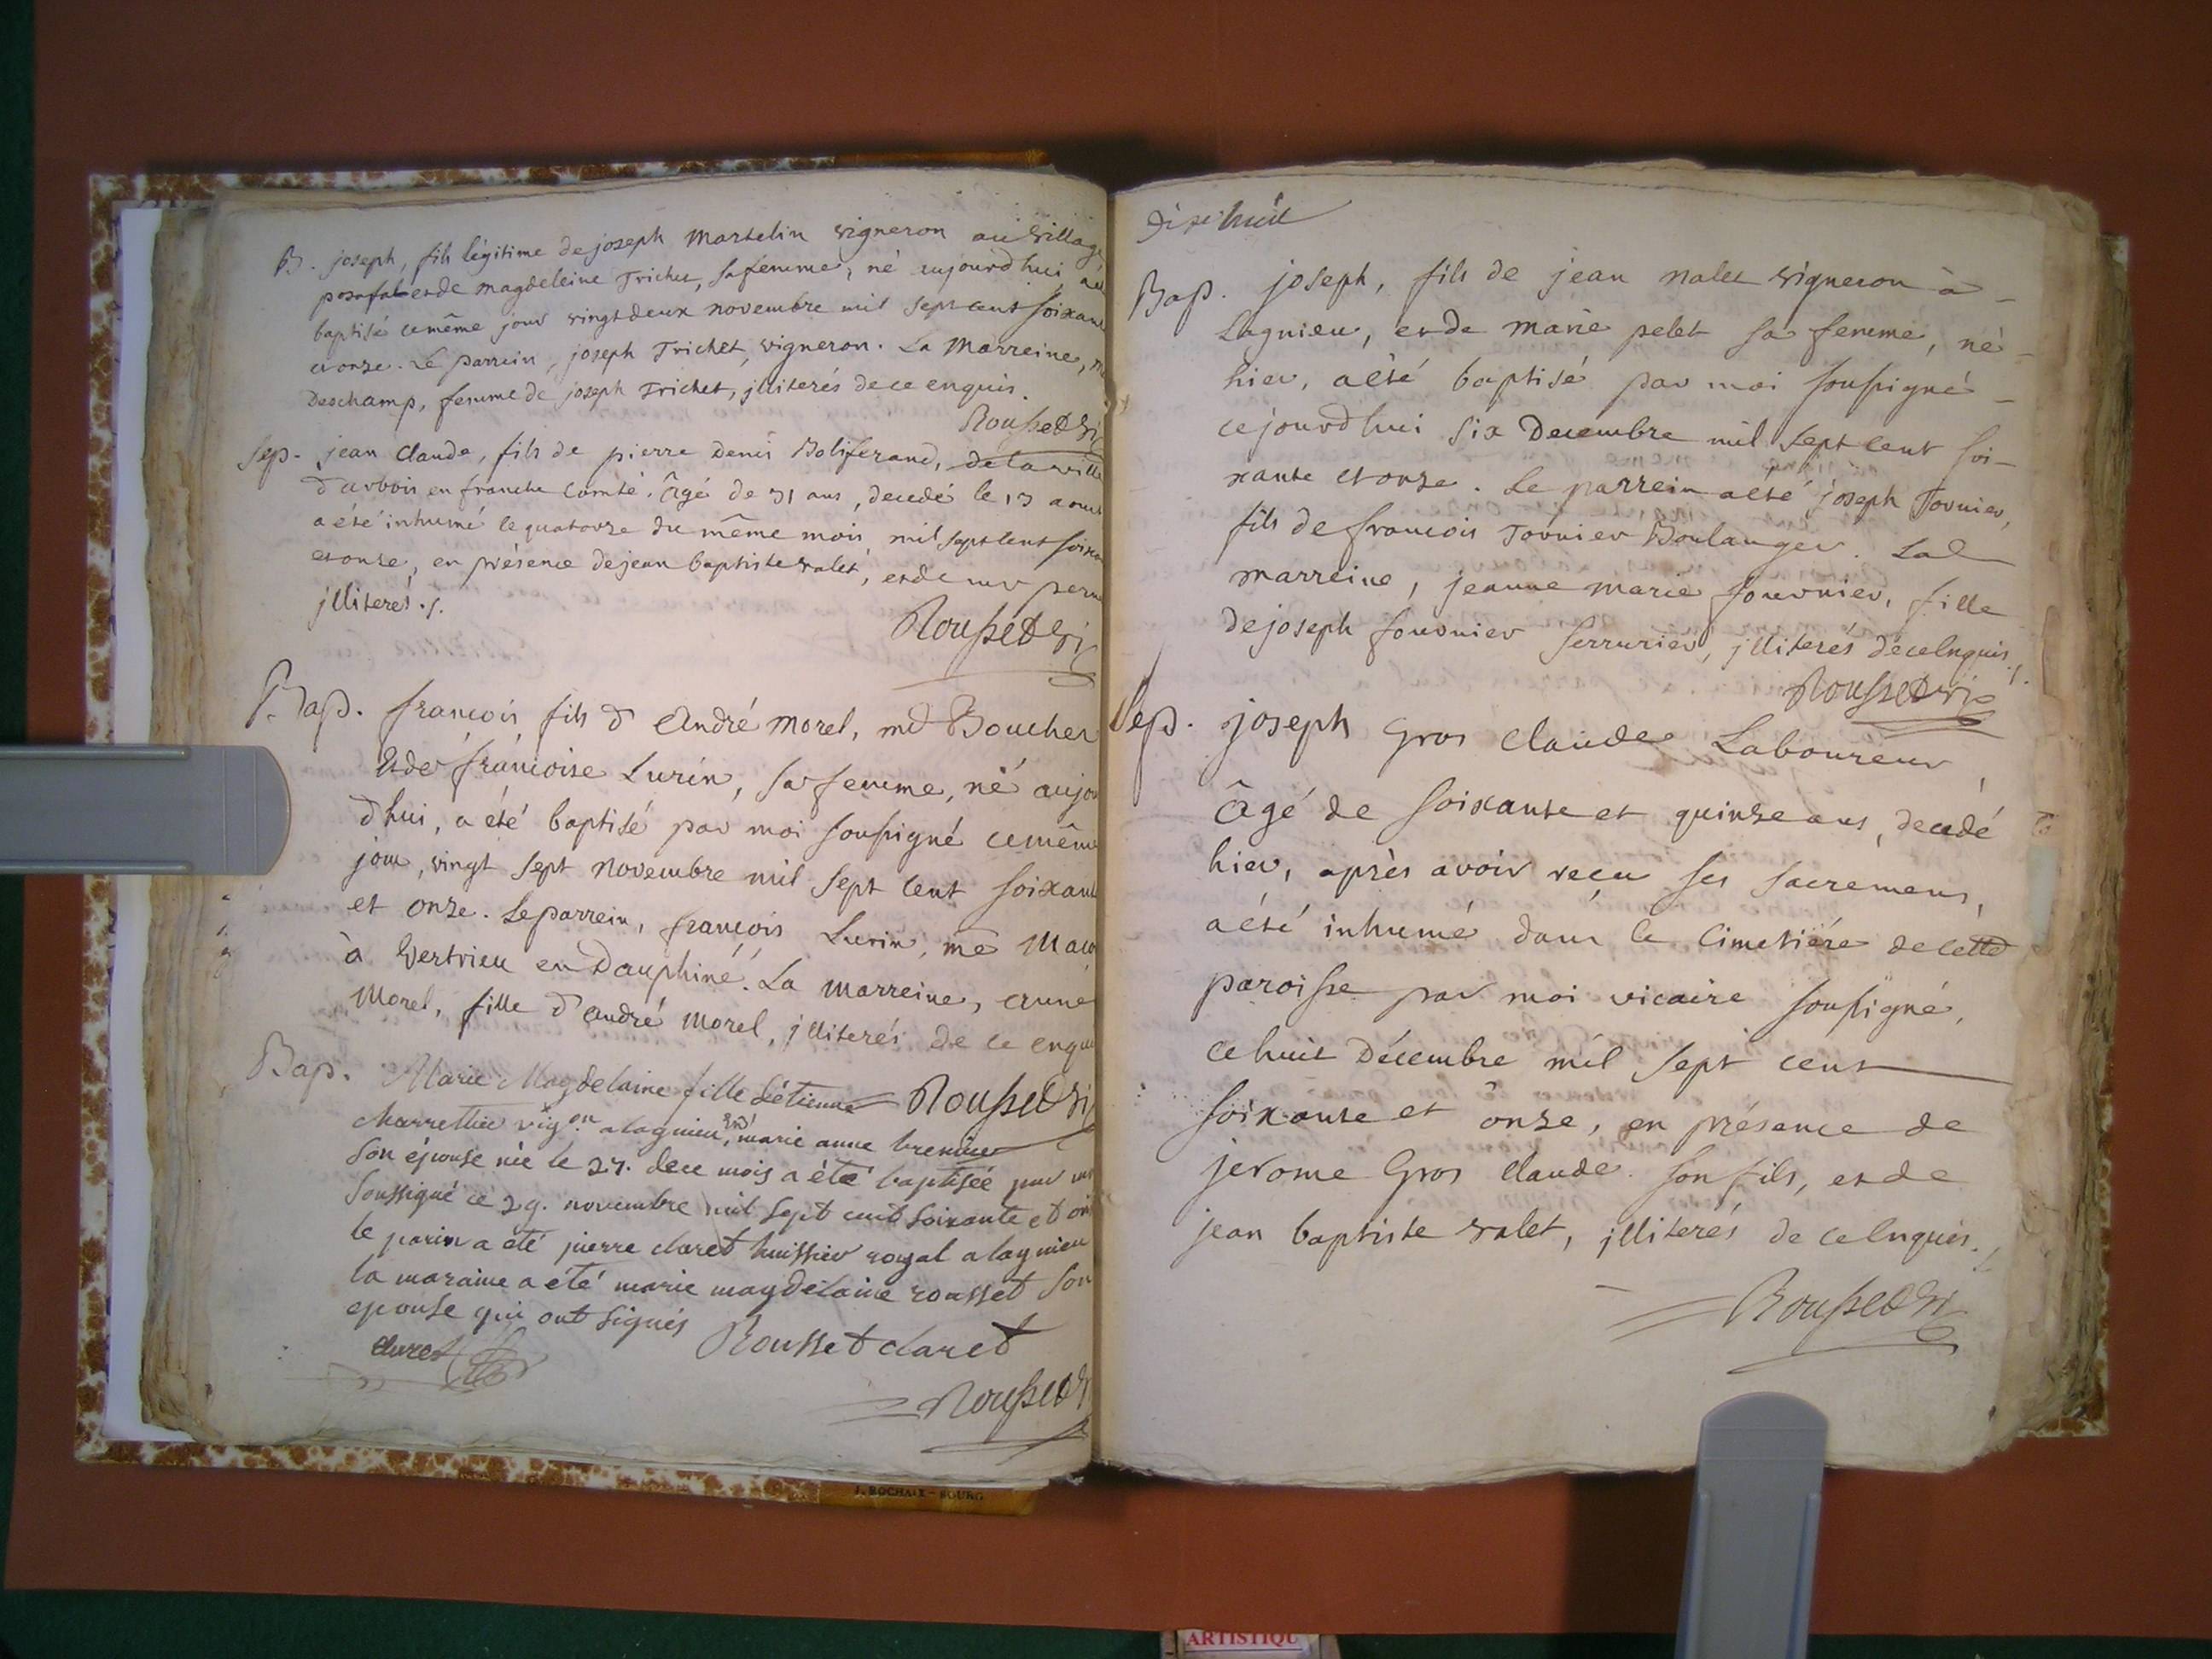 B. joseph, fils légitime de joseph Martelin vigneron au village
posafal et de magdeleine Trichet, sa femme, né aujourd hui, a été
baptisé ce même jour vingt deux novembre mil sept cent soixan
et onze. Le parrein, joseph Trichet, vigneron. La Marreine,
Deschamp, femme de joseph Trichet, jlliterés de ce enquis.
Rousset vi
Sep. jean Claude, fils de pierre denis Boliferand, de la ville
d'arbois en franche Comté. Âgé de 31 ans, decedé le 13
a été inhumé le quatorze du même mois, mil sept cent soixan
et onze, en présence de jean baptiste valet, et de
jlliterés ./.
Rousset vi
Bap. françois, fils d'André Morel, md Boucher
et de françoise Lurin, sa femme, né aujou
d hui, a été baptisé par moi soussigné ce même
jour, vingt sept Novembre mil sept cent soixan
et onze. Le parrein, françois Lurin, me Maco
à Vertrieu en Dauphiné. La Marreine, anne
Morel, fille d'andré Morel, jlliterés de ce enqui
Rousset vi
Bap. Marie Magdelaine fille d'étienne
charrettier vig.on a lagnieu, et d marie anne
son épouse née le 27. de ce mois a été baptisée par
soussigné ce 29. novembre mil sept cent soixante et on
le parin a été pierre claret huissier royal a lagnieu
la maraine a été marie magdelaine rousset son
epouse qui ont signés
Rousset claret
claret
Rousset v
Dixe huit
Bap. joseph, fils de jean valet vigneron à
Lagnieu, et de marie pelet sa femme, né
hier, a été baptisé par moi soussigné
ce jourd hui six Decembre mil sept cent soi-
xante et onze. Le parrein a été joseph Tornier,
fils de francois Tornier Boulanger. La
marreine, jeanne marie fournier, fille
de joseph fournier serrurier, jlliterés de ce enquis ./.
Rousset vi
Sep. joseph Gros Claude Laboureur,
Âgé de soixante et quinze ans, decedé
hier, après avoir reçu ses sacremens,
a été inhumé dans le Cimetière de cette
paroisse par moi vicaire soussigné,
ce huit Décembre mil sept cent
soixante et onze, en présence de
jerome Gros Claude son fils, et de
jean baptiste valet, jlliterés de ce enquis ./.
Rousset vi
J. ROCHAIX - BOURG
ARTISTIQU